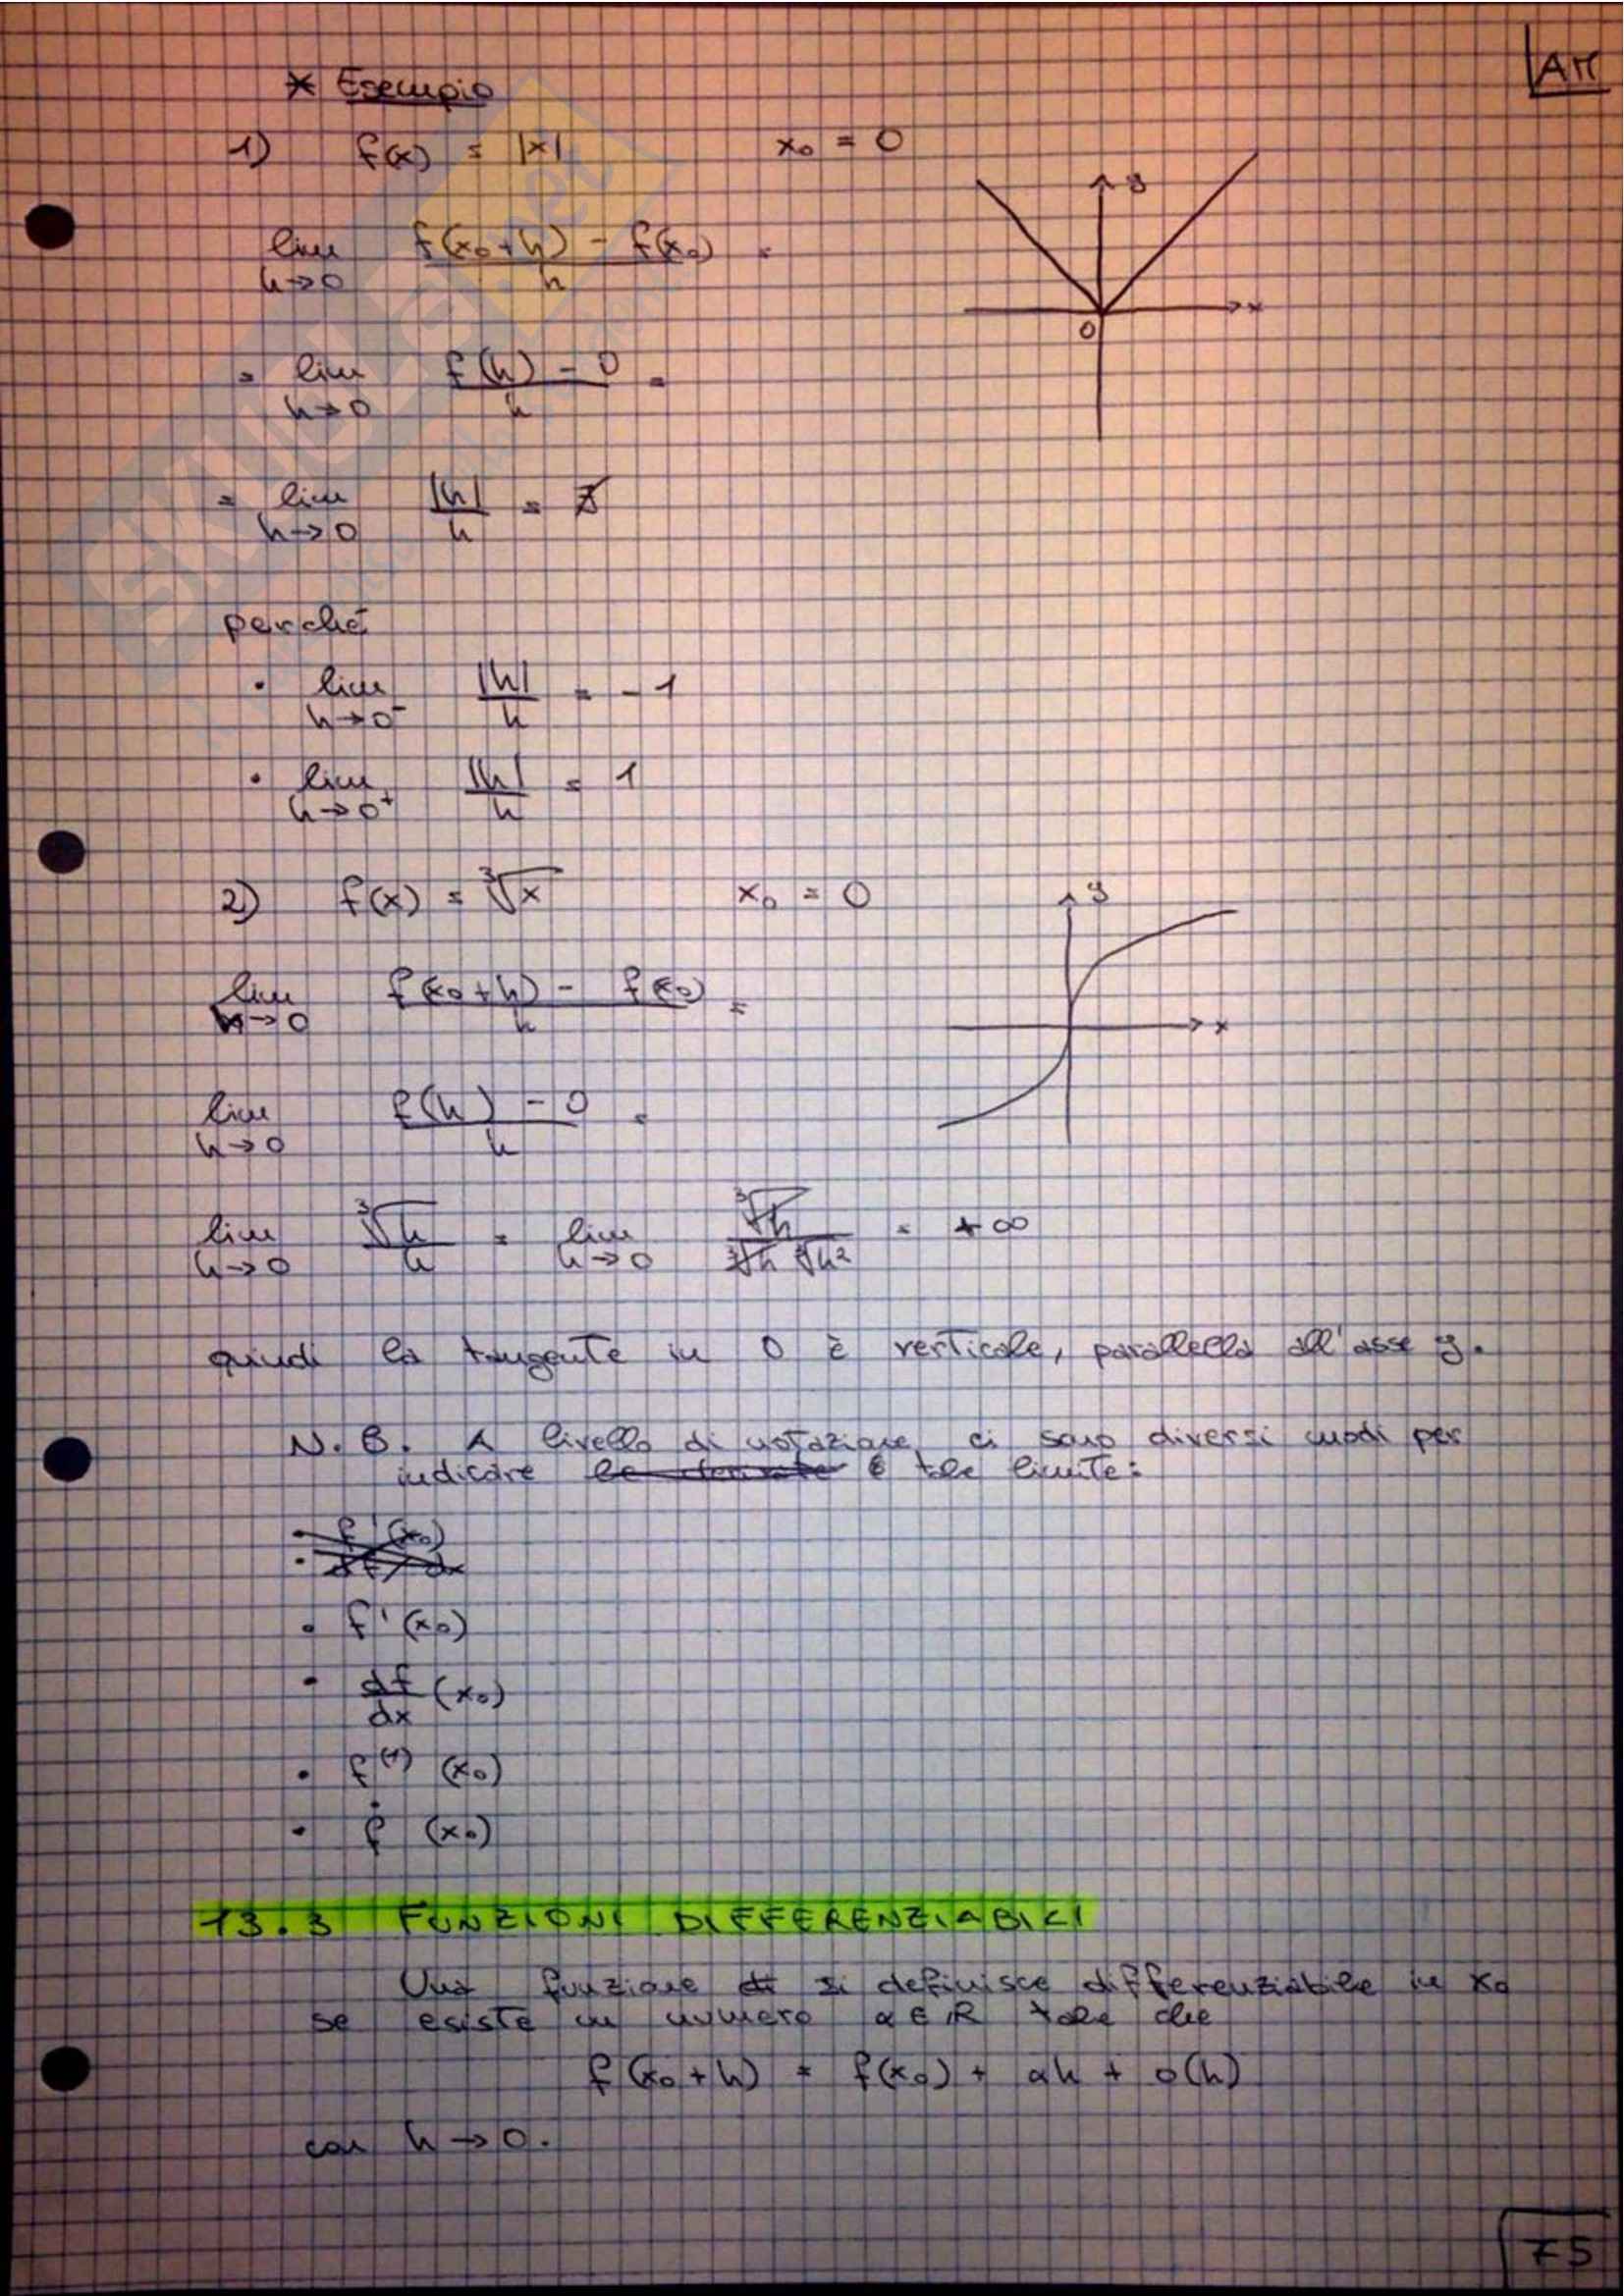 AM
* Esempio
1) f(x) = |x| x₀ = 0
lim h→0 (f(x₀+h) - f(x₀))/h =
= lim h→0 (f(h) - 0)/h =
= lim h→0 |h|/h = ∄
perché
• lim h→0⁻ |h|/h = -1
• lim h→0⁺ |h|/h = 1
y
x
0
2) f(x) = ∛x x₀ = 0
lim h→0 (f(x₀+h) - f(x₀))/h =
lim h→0 (f(h) - 0)/h =
lim h→0 ∛h/h = lim h→0 ∛h/(∛h ∛h²) = +∞
y
x
quindi la tangente in 0 è verticale, parallela all'asse y.
N.B. A livello di notazione, ci sono diversi modi per
indicare la derivata tale limite:
• f'(x₀)
• df/dx
• f'(x₀)
• df/dx (x₀)
• f⁽¹⁾ (x₀)
• ḟ (x₀)
13.3 FUNZIONI DIFFERENZIABILI
Una funzione si definisce differenziabile in x₀
se esiste un numero α∈ℝ tale che
f(x₀+h) = f(x₀) + αh + o(h)
con h→0.
75
SKUOLA.net